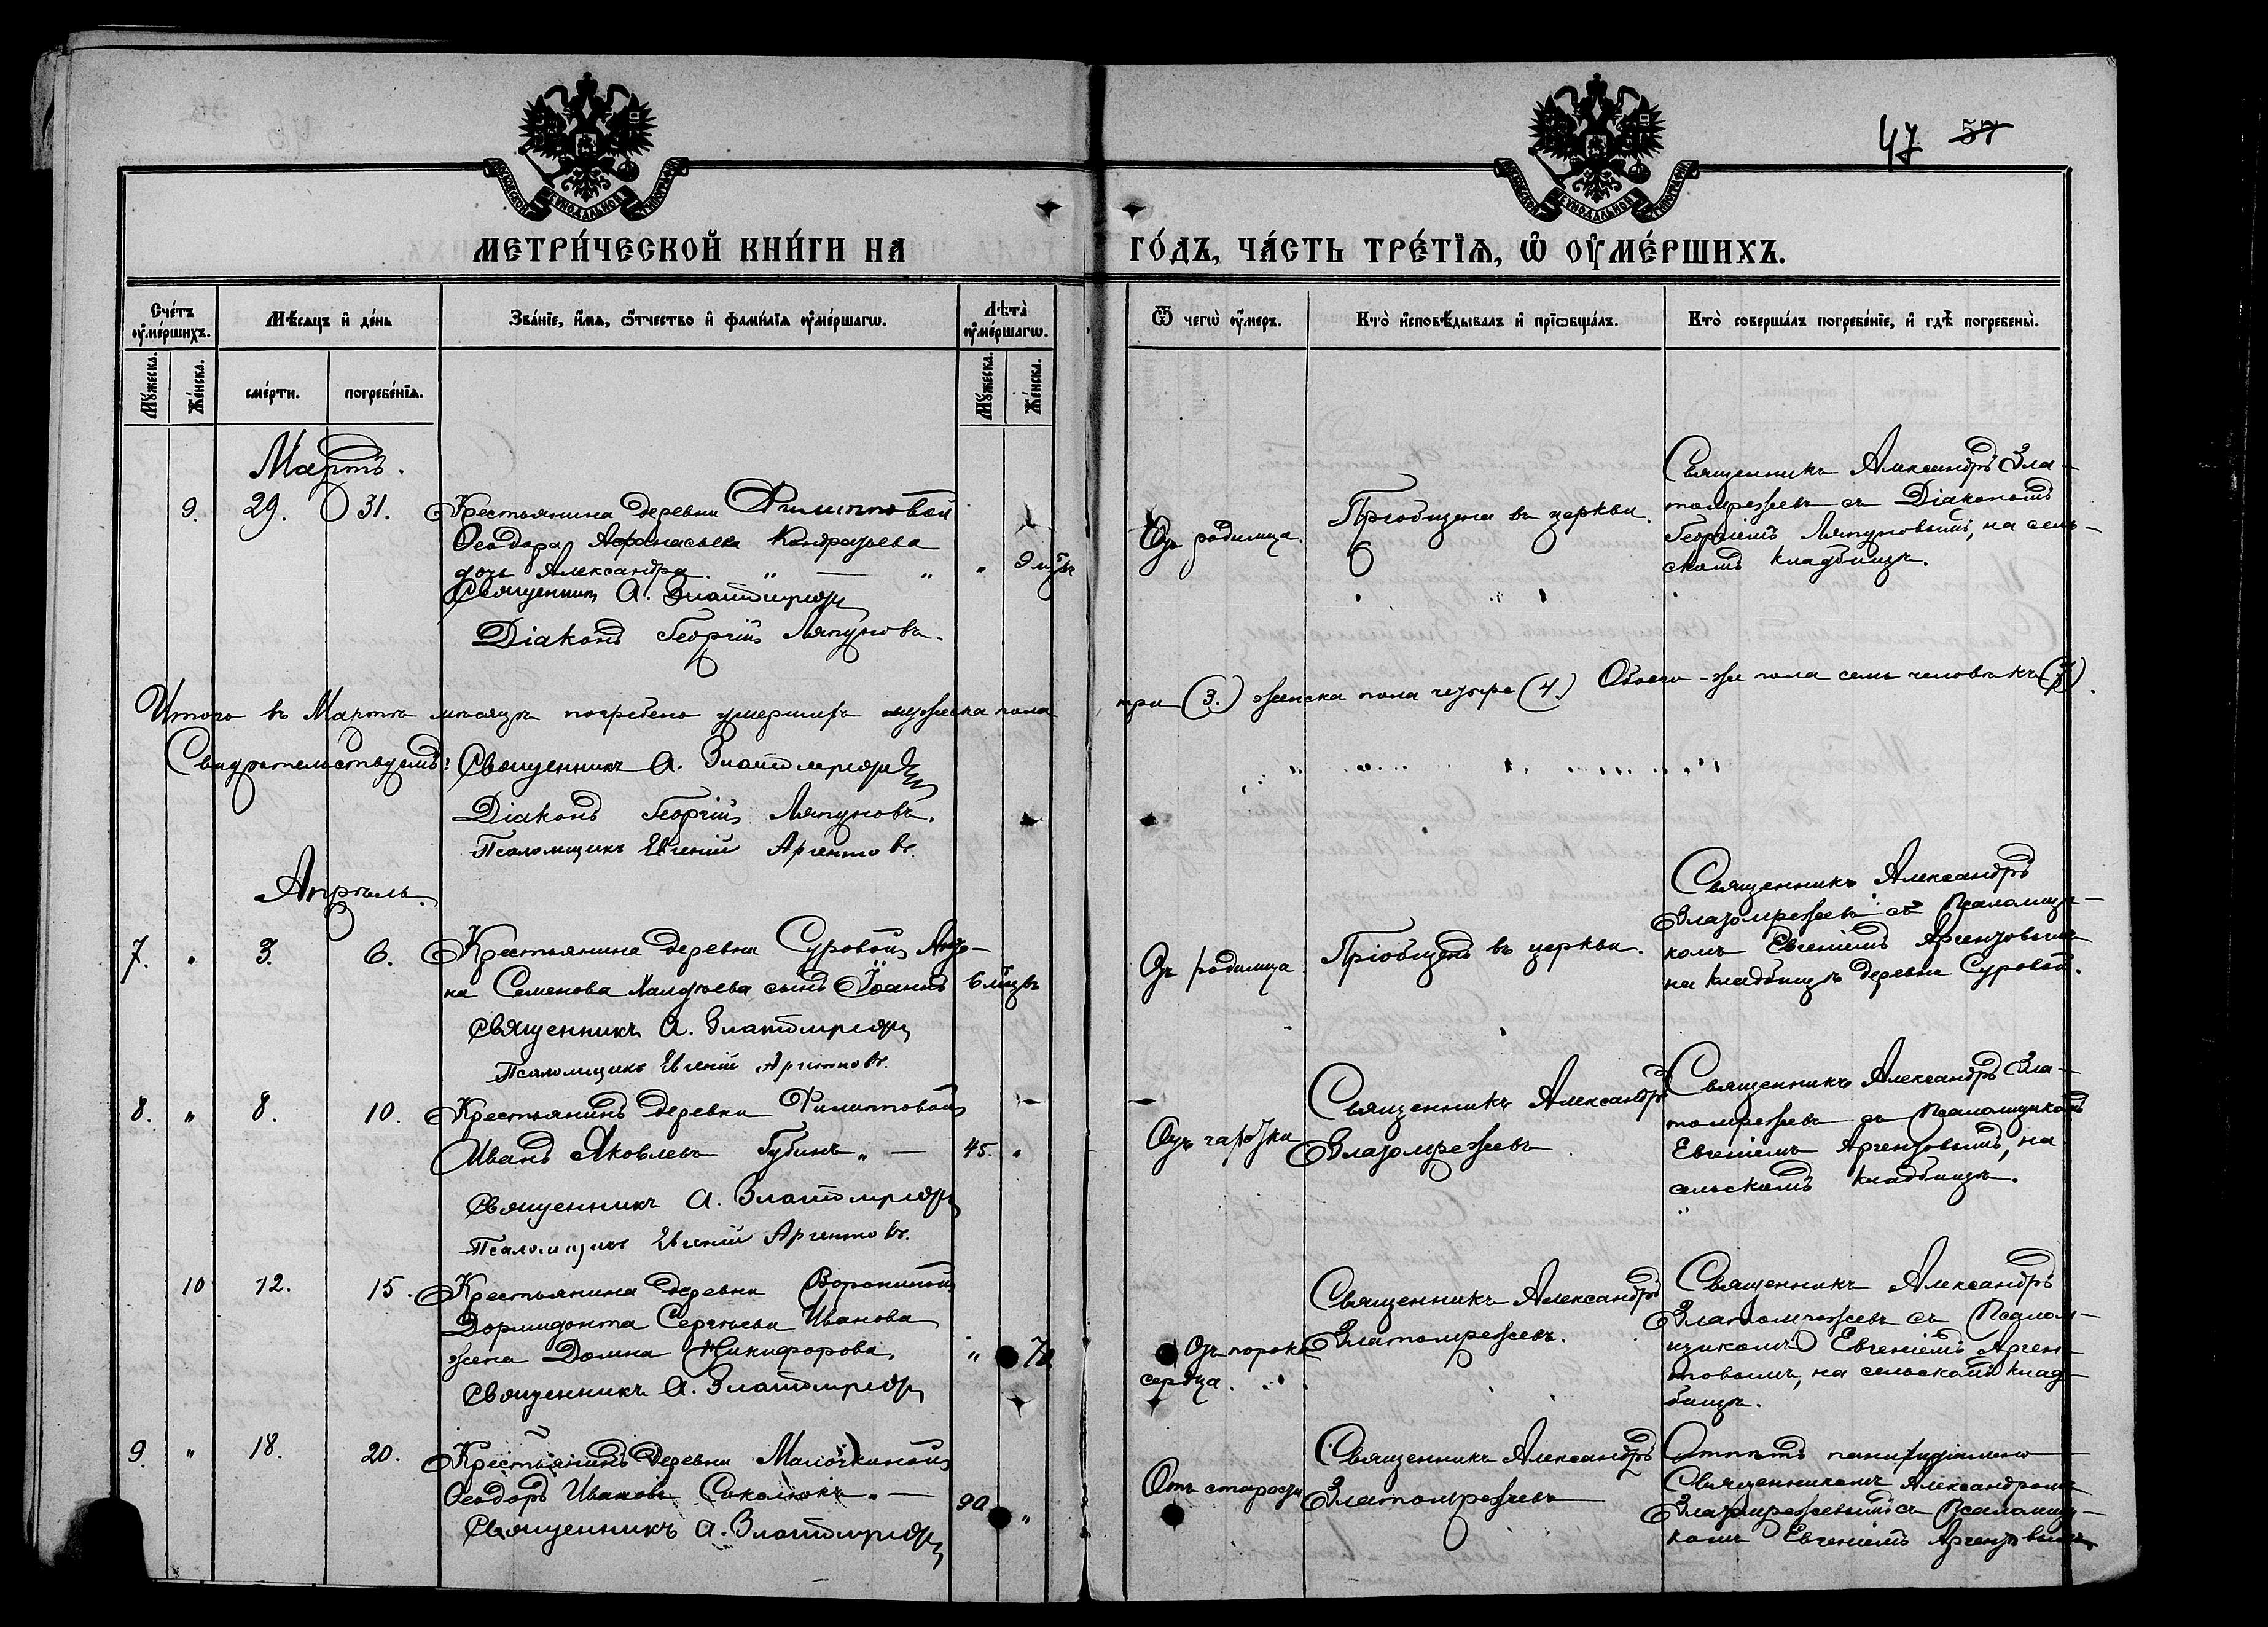 47 57
МЕТРИ́ЧЕСКОЙ КНИ́ГИ НА ГО́ДЪ, ЧА́СТЬ ТРЕ́ТЇѦ, Ѡ҆ ОУ҆МЕ́РШИХЪ.
Сче́тъ оу҆ме́ршихъ.
Мѣ́сѧцъ и҆ де́нь
Зва́нїе, и҆́мѧ, ѻ҆́тчество и҆ фами́лїѧ оу҆ме́ршагѡ.
Лѣ́та̀ оу҆ме́ршагѡ.
Ѿ чегѡ̀ оу҆́меръ.
Кто̀ и҆сповѣ́дывалъ и҆ прїѡбща́лъ.
Кто̀ соверша́лъ погребе́нїе, и҆ гдѣ̀ погребены̀.
Мꙋ́жеска.
Же́нска.
сме́рти.
погребе́нїѧ.
Мꙋ́жеска.
Же́нска.
Мартъ.
9. 29. 31. Крестьянина деревни Филипповой
Ѳеодора Афанасьева Кондратьева
дочь Александра " — " " 9 мѣс.
Священникъ А. Златомрежевъ
Діаконъ Георгій Ляпуновъ.
Отъ родимца.
Пріобщена въ церкви.
Священникъ Александръ Зла-
томрежевъ съ Діакономъ
Георгіемъ Ляпуновымъ, на сель-
скомъ кладбищѣ.
Итого въ Мартѣ мѣсяцѣ погребено умершихъ мужеска пола три (3.) женска пола четыре (4.) Обоего-же пола семь человѣкъ (7).
Свидѣтельствуемъ: Священникъ А. Златомрежевъ
Діаконъ Георгій Ляпуновъ.
Псаломщикъ Евгеній Аргентовъ.
Апрѣль.
7. " 3. 6. Крестьянина деревни Суровой
на Семенова сынъ Іоаннъ 6 мѣсцвъ
Священникъ А. Златомрежевъ
Псаломщикъ Евгеній Аргентовъ.
Отъ родимца.
Пріобщенъ въ церкви.
Священникъ Александръ
Златомрежевъ съ Псаломщи-
комъ Евгеніемъ Аргентовымъ
на кладбищѣ деревни Суровой.
8. " 8. 10. Крестьянинъ деревни Филипповой
Иванъ Яковлевъ Губинъ " — 45. "
Священникъ А. Златомрежевъ
Псаломщикъ Евгеній Аргентовъ.
Отъ чахотки
Священникъ Александръ
Златомрежевъ
Священникъ Александръ Зла-
томрежевъ съ Псаломщикомъ
Евгеніемъ Аргентовымъ, на
сельскомъ кладбищѣ.
10 12. 15. Крестьянина деревни Ворониной
Дормидонта Сергѣева Иванова
жена Домна Никифорова. " 70
Священникъ А. Златомрежевъ
Отъ порока
сердца.
Священникъ Александръ
Златомрежевъ.
Священникъ Александръ
Златомрежевъ съ Псалом-
щикомъ Евгеніемъ Арген-
товымъ, на сельскомъ клад-
бищѣ.
9. " 18. 20. Крестьянинъ деревни Малочкиной
Ѳеодоръ Ивановъ " — 90 "
Священникъ А. Златомрежевъ
Отъ старости
Священникъ Александръ
Златомрежевъ
Отпѣтъ
Священникомъ Александромъ
Златомрежевымъ съ Псаломщи-
комъ Евгеніемъ Аргентовымъ